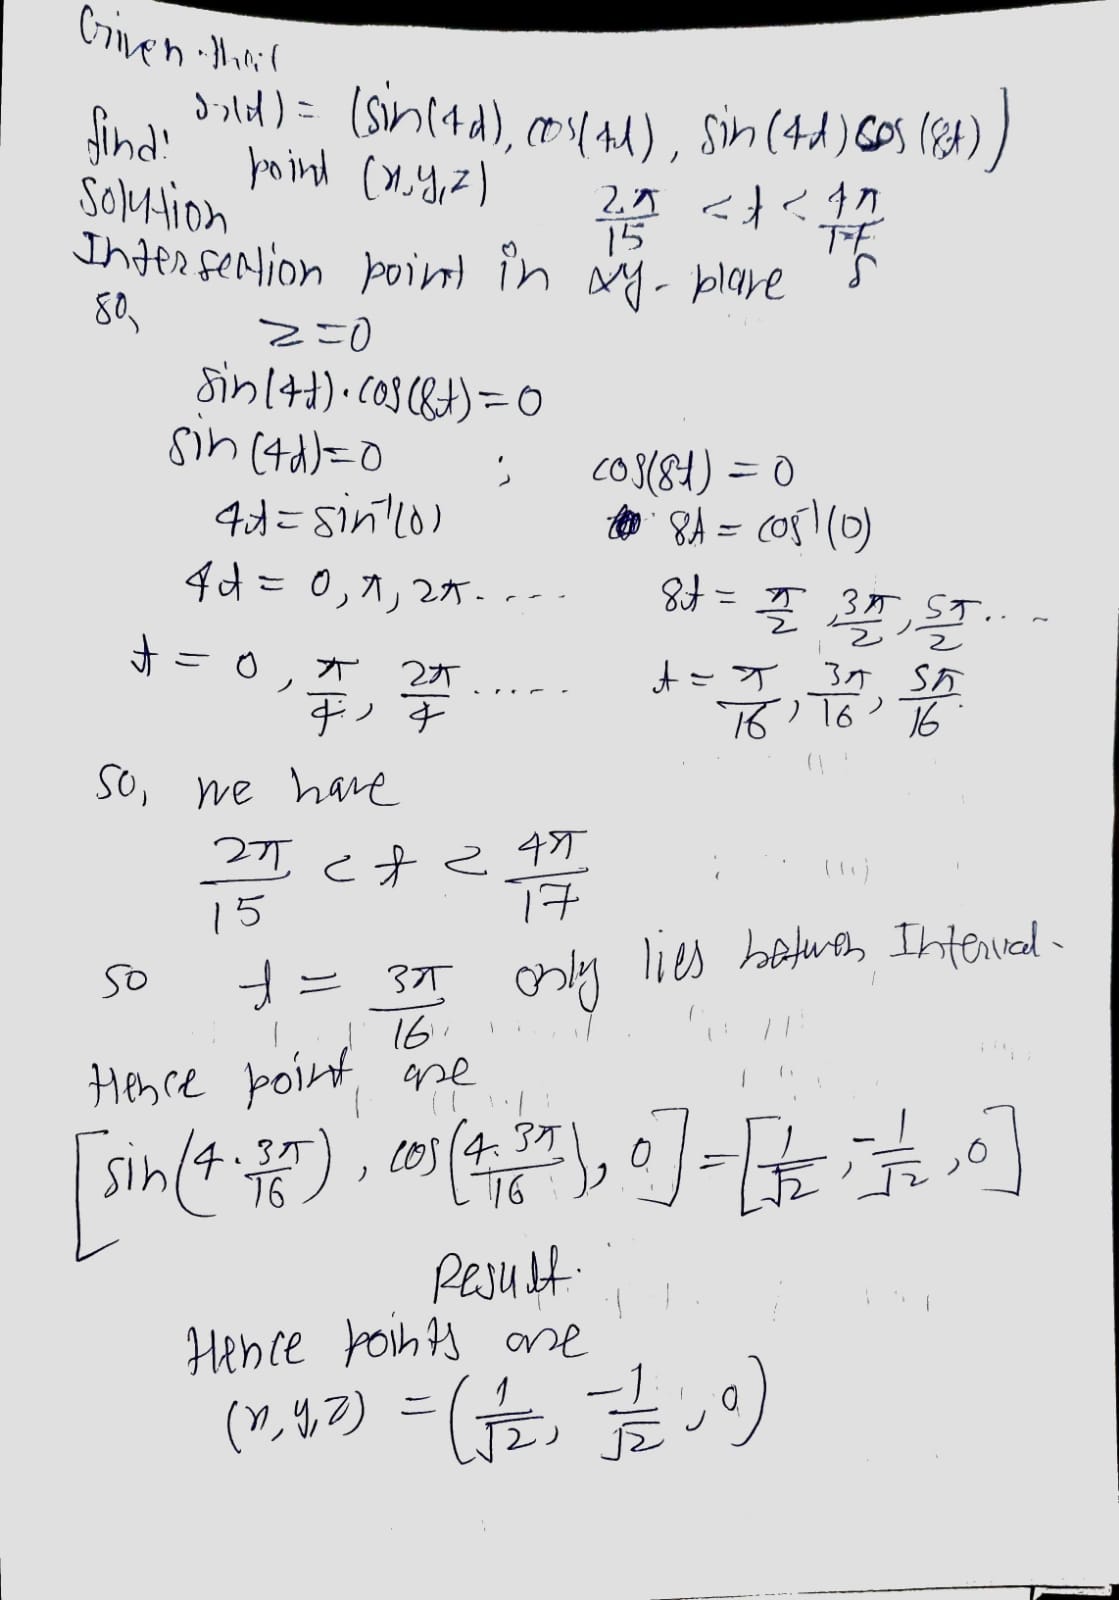 Given that
r(t) = (sin(4t), cos(4t), sin(4t) cos(8t))
find: point (x,y,z) 2π/15 < t < 4π/17
Solution
Intersection point in xy-plane
so, z=0
sin(4t)·cos(8t)=0
sin(4t)=0 ; cos(8t)=0
4t=sin⁻¹(0) 8t=cos⁻¹(0)
4t=0,π,2π..... 8t=π/2,3π/2,5π/2....
t=0,π/4,2π/4...... t=π/16,3π/16,5π/16.
so, we have
2π/15 < t < 4π/17
so t=3π/16 only lies between Interval.
Hence point are
[sin(4·3π/16), cos(4·3π/16), 0]=[1/√2, -1/√2, 0]
Result.
Hence points are
(x,y,z) =(1/√2, -1/√2, 0)